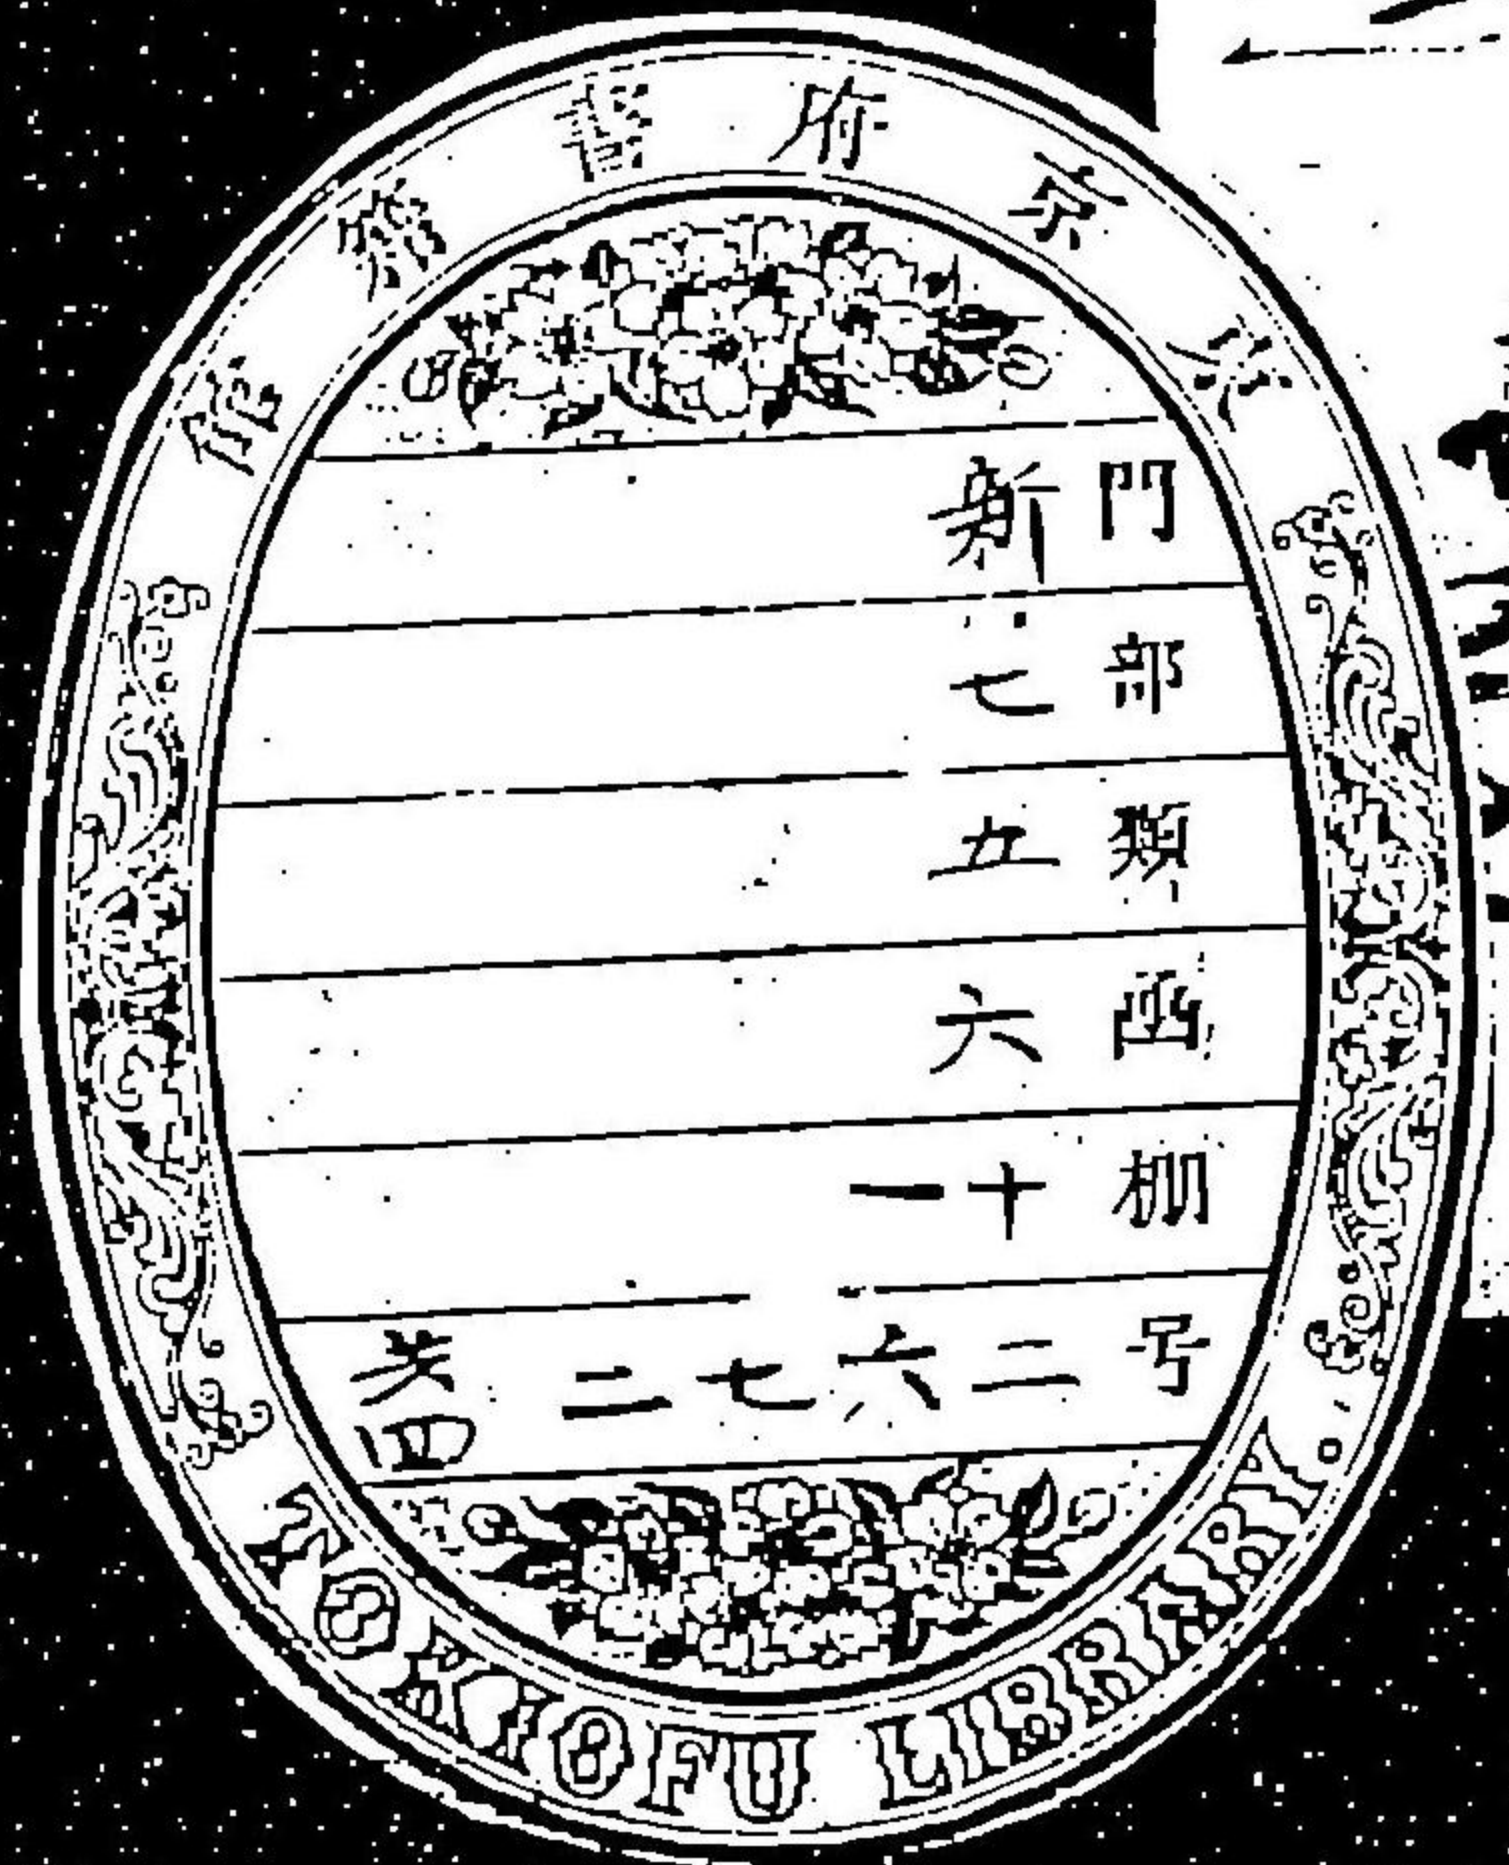 東京府書籍館
門 新
部 七
類 五
函 六
棚 十一
号 二六七二 共四
TOKIOFU LIBRARY.